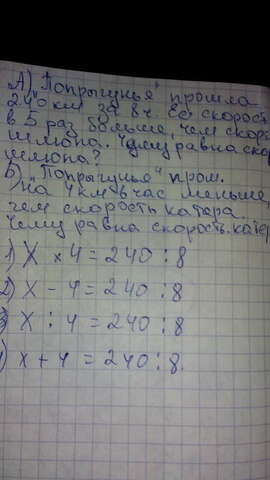 А) "Попрыгунья" прошла
240 км за 8 ч. Её скорост
в 5 раз больше, чем скоро
шлюпа. Чему равна скор
шлюпа?
Б) "Попрыгунья" пром.
на 4 км в час меньше,
чем скорость катера.
Чему равна скорость. кате
1) X × 4 = 240 : 8
2) X - 4 = 240 : 8
3) X : 4 = 240 : 8
) x + 4 = 240 : 8.